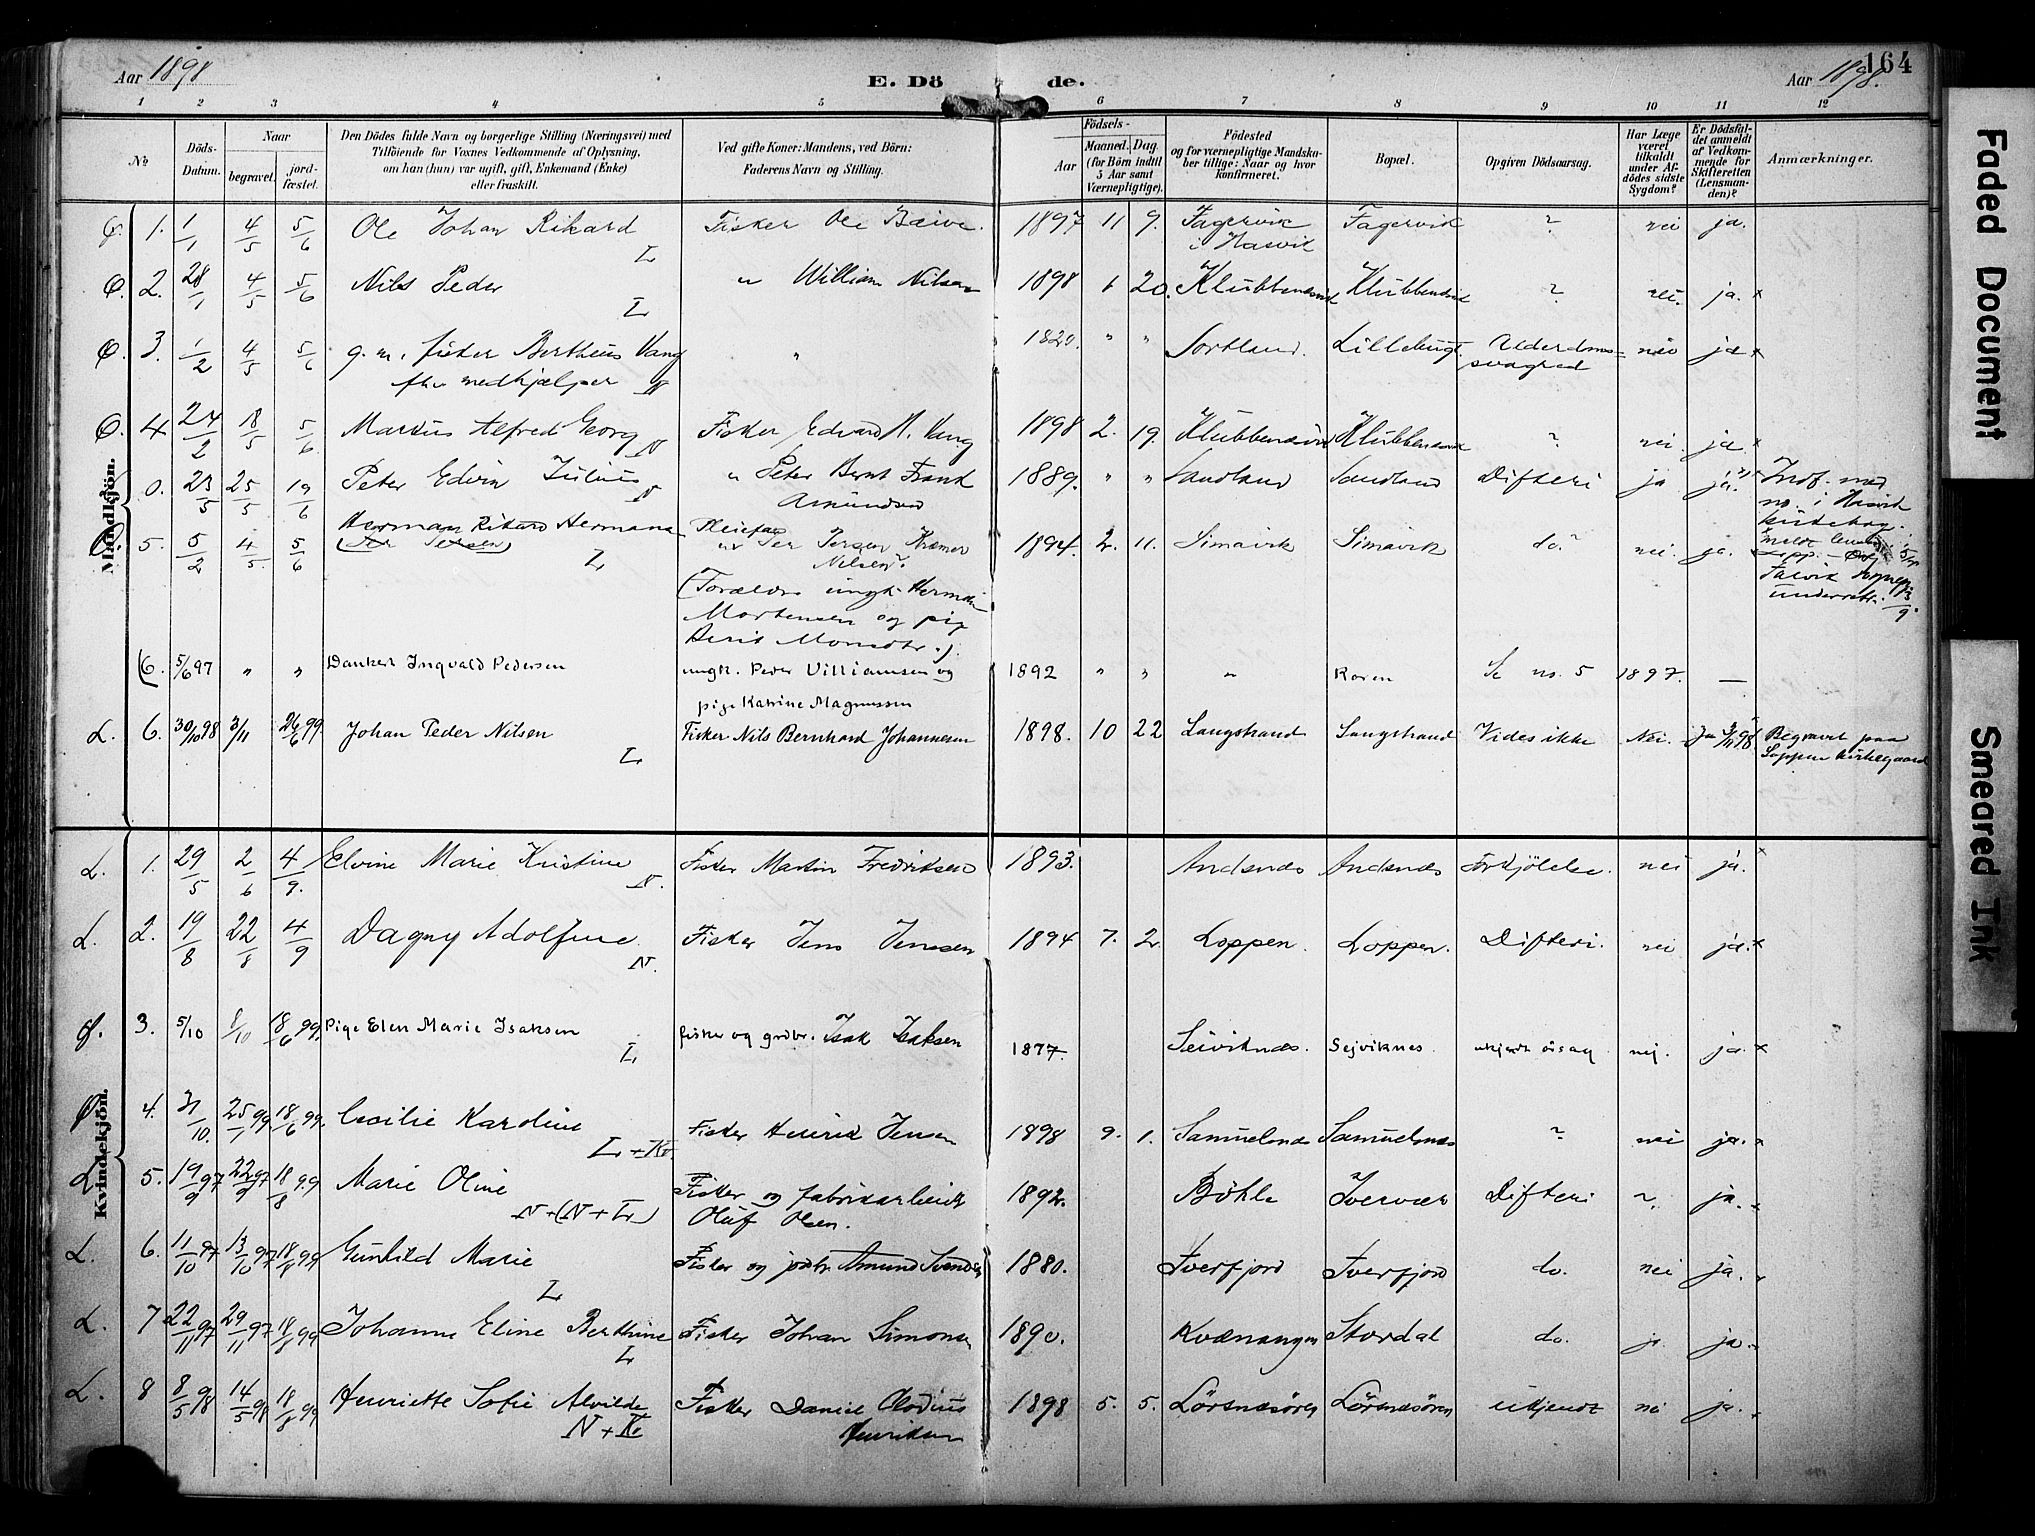 164
Aar 1898 E. Dö de. Aar 1898.
1 2 3 4 5 6 7 8 9 10 11 12
No Döds-Datum. Naar begravet. jord-fæstet. Den Dödes fulde Navn og borgerlige Stilling (Næringsvei) med Tilföiende for Voxnes Vedkommende af Oplysning, om han (hun) var ugift, gift, Enkemand (Enke) eller fraskilt. Ved gifte Koner: Mandens, ved Börn: Faderens Navn og Stilling. Födsels- Aar Maaned. Dag. (for Börn indtil 5 Aar samt Værnepligtige). Födested og for værnepligtige Mandska-ber tillige: Naar og hvor konfirmeret. Bopæl. Opgiven Dödsaarsag. Har Læge været tilkaldt under Af-dödes sidste Sygdom? Er Dödsfal-det anmeldt af Vedkom-mende for Skifteretten (Lensman-den)? Anmærkninger.
Mandkjön.
1. 1/1 4/5 5/6 Ole Johan Rikard L Fisker Ole Bæive. 1897 11 9. Fagervik i Hasvik Fagervik ? nei ja.
2. 28/1 4/5 5/6 Nils Peder L " William Nilsen 1898 1 20. Klubbensvik Klubbensvik ? nei. ja. x
3. 1/2 4/5 5/6 g. m. fisker Bertheus Vang " 1820 " " Sortland. Lillebugt. Alderdoms- nei ja x
fhv medhjælper N svaghed
4 24/2 18/5 5/6 Markus Alfred Georg N Fisker Edvard H. Vang 1898 2. 19. Klubbensvik Klubbensvik ? nei ja x
0. 23/5 25/5 19/6 Peter Edvin Julius N " Peter Bernt Frank Amundsen 1889. " " Sandland Sandland Difteri ja ja. Indf. med no. 1 Hasvik kirkebog.
5. 5/2 4/5 5/6 Herman Rikard Hermans L Pleiefar Per Persen Kræmer Nilsen? 1894. 2. 11. Simavik Simavik do? nei. ja.
(Forældre ungk. Herman
Mortensen og pig
Berit Monsdtr.).
(6. 5/6 97 " " Dankert Ingvald Pedersen ungk. Peder Villiamsen og 1892 " " " Roren Se no. 5 1897. —
pige Katrine Magnussen
L. 6. 30/10 98 3/11 26/6 99 Johan Peder Nilsen L Fisker Nils Bernhard Johannesen 1898. 10 22 Langstrand Langstrand Vides ikke Nei. Ja 3/11 98 Begravet paa Loppen kirkegaard
Kvindekjön.
L. 1. 29/5 2/6 4/9. Elvine Marie Kristine N. Fisker Martin Fredriksen 1893. Andsnes Andsnes Forkjölelse. nei ja. x
L. 2. 19/8 22/8 4/9 Dagny Adolfine N. Fisker Jens Jenssen 1894 7. 2. Loppen. Loppen. Difteri. nei ja. x
3. 5/10 8/10 18/6 99. Pige Elen Marie Isaksen L fisker og grdbr. Isak Isaksen 1877 Seiviknes. Sejviknes. ukjendt årsag nej. ja. x
4. 31/10. 25/1 99. 18/6 99. Cecilie Karoline L + Kv. Fisker Henrik Jensen 1898 9. 1. Samuelsnes Samuelsnes ? nei ja.
L 5. 19/9 97 22/9 97 18/8 99 Marie Oline N + (N + L) Fisker og fabrikarbeider Oluf Olsen. 1892. Böhle Iversvær Difteri ?. ja.
L. 6. 11/10 97 13/10 97 18/8 99 Gunhild Marie L Fisker og jordbr. Amund Svendsen 1880. Tverfjord Tverfjord do. nei ja.
L. 7 22/11 97 29/11 97 18/6 99 Johanne Eline Berthine L Fisker Johan Simonsen 1890. Kvænangen Stordal do. ja. ja.
L. 8 8/5 98 14/5 98 18/8 99 Henriette Sofie Alvilde N + Kv Fisker Daniel Clodius Henriksen 1898 5. 5. Lörsnæsören Lörsnæsören ukjendt nei ja.
Faded Document
Smeared Ink